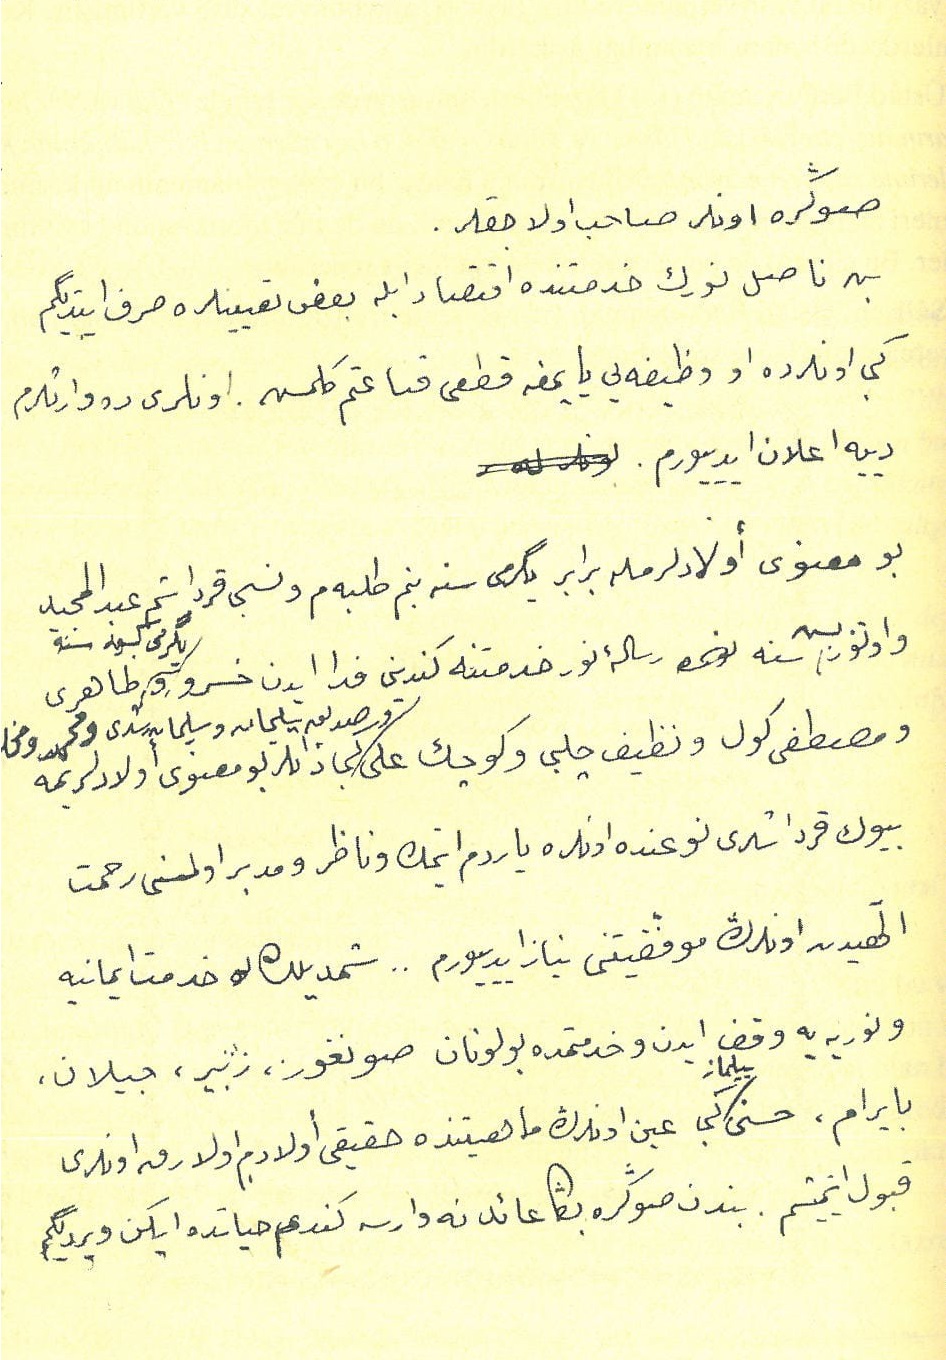 صوڭره اونلر صاحب اولاجقلر .
بن ناصل نورك خدمتنده اقتصاد ايله بعض تعيينلره صرف ايتديگم
كبي اونلرده او وظيفه‌يي ياپمغه قطعى قناعتم كلمش . اونلرى ده وارثلرم
دييه اعلان ايدييورم .
بو معنوى أولادلرمله برابر يگرمى سنه بنم طلبه‌م و نسبى قرداشم عبدالمجيد
يگرمى سنه
و اوتوز بش سنه رسالۀ نور خدمتنه كندينى فدا ايدن خسرو و طاهرى
و صديق سليمان و سليمان رشدى و محمد
و مصطفى كول و نظيف چلبى و كوچك على كبى ذاتلر بو معنوى أولادلريمه
بيوك قرداشلرى نوعنده اونلره ياردم ايتمك و ناظر و مدبر اولمسنى رحمت
الٓهيدن اونلرڭ موفقيتنى نياز ايدييورم .. شمديلك خدمت ايمانيه
و نوريه يه وقف ايدن و خدمتمده بولونان صونغور ، زبير ، جيلان ،
بايرام ، حسنى كبى عين اونلرڭ ماهيتنده حقيقى أولادم اولارق اونلرى
قبول ايتمشم . بندن صوڭره بڭا عائد نه وارسه كندم حياتده ايكن ويرديگم